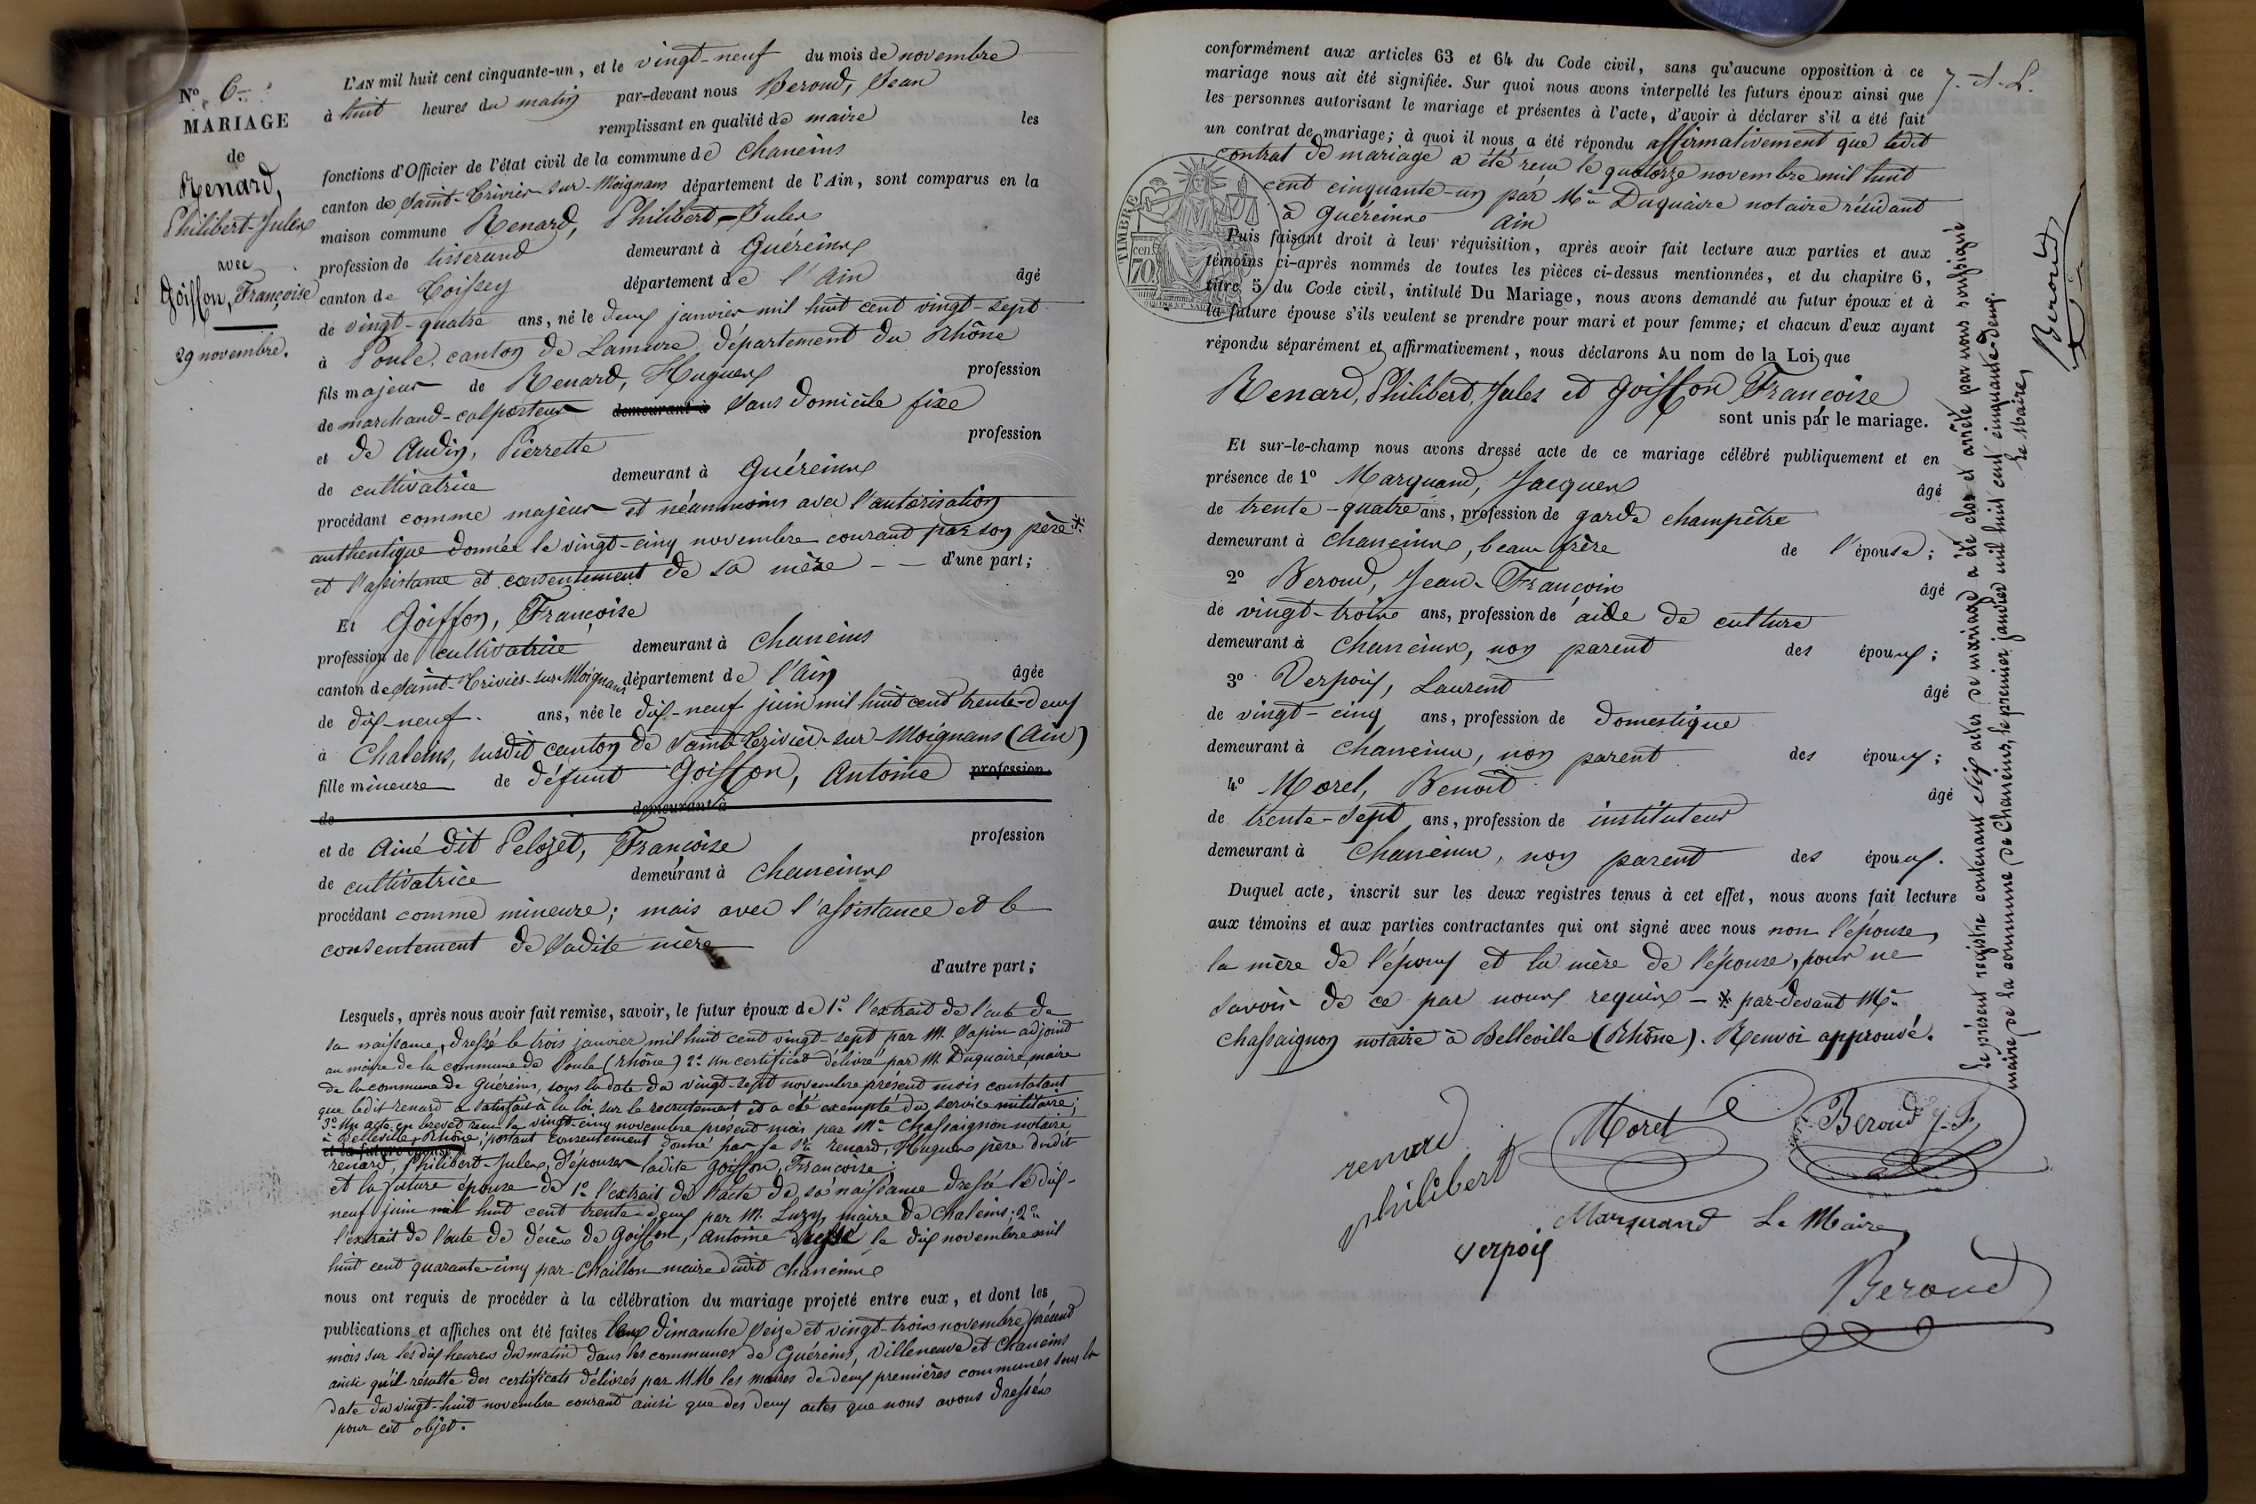 N° 6.
MARIAGE
de
Renard,
Philibert-Jules
avec
Goiffon, Françoise
29 novembre.
L'AN mil huit cent cinquante-un, et le vingt-neuf du mois de novembre
à huit heures du matin par-devant nous Beroud, Jean
remplissant en qualité de maire les
fonctions d'Officier de l'état civil de la commune de Chaneins
canton de Saint-Trivier-sur-Moignans département de l'Ain, sont comparus en la
maison commune Renard, Philibert-Jules
profession de tisserand demeurant à Guéreins
canton de Toissey département de l'Ain âgé
de vingt-quatre ans, né le deux janvier mil huit cent vingt-sept
à Poule, canton de Lamure département du Rhône
fils majeur de Renard, Hugues profession
de marchand-colporteur demeurant à sans domicile fixe
et de Audin, Pierrette profession
de cultivatrice demeurant à Guéreins
procédant comme majeur et néanmoins avec l'autorisation
authentique donnée le vingt-cinq novembre courant par son père *
et l'assistance et consentement de sa mère — — d'une part;
Et Goiffon, Françoise
profession de cultivatrice demeurant à Chaneins
canton de Saint-Trivier-sur-Moignans département de l'Ain âgée
de dix-neuf. ans, née le dix-neuf juin mil huit cent trente-deux
à Chaleins, susdit canton de Saint-Trivier-sur-Moignans (Ain)
fille mineure de défunt Goiffon, Antoine profession
de demeurant à
et de Ainé dit Pelozet, Françoise profession
de cultivatrice demeurant à Chaneins
procédant comme mineure; mais avec l'assistance et le
consentement de sadite mère
d'autre part;
Lesquels, après nous avoir fait remise, savoir, le futur époux de 1° l'extrait de l'acte de
sa naissance, dressé le trois janvier mil huit cent vingt-sept par M. Sapin adjoint
au maire de la commune de Poule (Rhône) 2° un certificat délivré par M. Duquaire, maire
de la commune de Guéreins, sous la date du vingt-sept novembre présent mois constatant
que ledit renard a satisfait à la loi sur le recrutement et a été exempté du service militaire;
3° un acte en brevet reçu le vingt-cinq novembre présent mois par Me Chassaignon notaire
à Belleville, Rhône, portant consentement donné par le sr renard, Hugues père dudit
et la future épouse
renard, Philibert-Jules, d'épouser ladite Goiffon, Françoise;
et la future épouse de 1° l'extrait de l'acte de sa naissance dressé le dix-
neuf juin mil huit cent trente-deux par M. Luzy, maire de Chaleins; 2°
l'extrait de l'acte de décès de Goiffon, Antoine dressé le dix novembre mil
huit cent quarante-cinq par Chaillon maire dudit Chaneins
nous ont requis de procéder à la célébration du mariage projeté entre eux, et dont les
publications et affiches ont été faites les dimanche seize et vingt-trois novembre présent
mois sur les dix heures du matin dans les communes de Guéreins, Villeneuve et Chaneins
ainsi qu'il résulte des certificats délivrés par MM les maires de deux premières communes sous la
date du vingt-huit novembre courant ainsi que des deux actes que nous avons dressés
pour cet objet.
conformément aux articles 63 et 64 du Code civil, sans qu'aucune opposition à ce
mariage nous ait été signifiée. Sur quoi nous avons interpellé les futurs époux ainsi que
les personnes autorisant le mariage et présentes à l'acte, d'avoir à déclarer s'il a été fait
un contrat de mariage; à quoi il nous a été répondu affirmativement que ledit
contrat de mariage a été reçu le quatorze novembre mil huit
cent cinquante-un par Me Duquaire notaire résidant
à Guéreins Ain
TIMBRE
70.
Puis faisant droit à leur réquisition, après avoir fait lecture aux parties et aux
témoins ci-après nommés de toutes les pièces ci-dessus mentionnées, et du chapitre 6,
titre 5 du Code civil, intitulé Du Mariage, nous avons demandé au futur époux et à
la future épouse s'ils veulent se prendre pour mari et pour femme; et chacun d'eux ayant
répondu séparément et affirmativement, nous déclarons Au nom de la Loi, que
Renard, Philibert, Jules et Goiffon Françoise
sont unis par le mariage.
Et sur-le-champ nous avons dressé acte de ce mariage célébré publiquement et en
présence de 1° Marquand, Jacques âgé
de trente-quatre ans, profession de garde champêtre
demeurant à Chaneins, beau frère de l'épouse;
2° Beroud, Jean-François âgé
de vingt-trois ans, profession de aide de culture
demeurant à Chaneins, non parent des époux;
3° Verpoix, Laurent âgé
de vingt-cinq ans, profession de domestique
demeurant à Chaneins, non parent des époux;
4° Morel, Benoit âgé
de trente-sept ans, profession de instituteur
demeurant à Chaneins, non parent des époux.
Duquel acte, inscrit sur les deux registres tenus à cet effet, nous avons fait lecture
aux témoins et aux parties contractantes qui ont signé avec nous non l'épouse,
la mère de l'époux et la mère de l'épouse, pour ne
savoir de ce par nous requis — * par-devant Me
Chassaignon notaire à Belleville (Rhône). Renvoi approuvé.
renard
philibert
Morel
Beroud J. F.
Marquand Le Maire,
verpoix
Beroud
Le présent registre contenant six actes de mariage a été clos et arrêté par nous soussigné
maire de la commune de Chaneins, le premier janvier mil huit cent cinquante-deux.
Le Maire,
Beroud